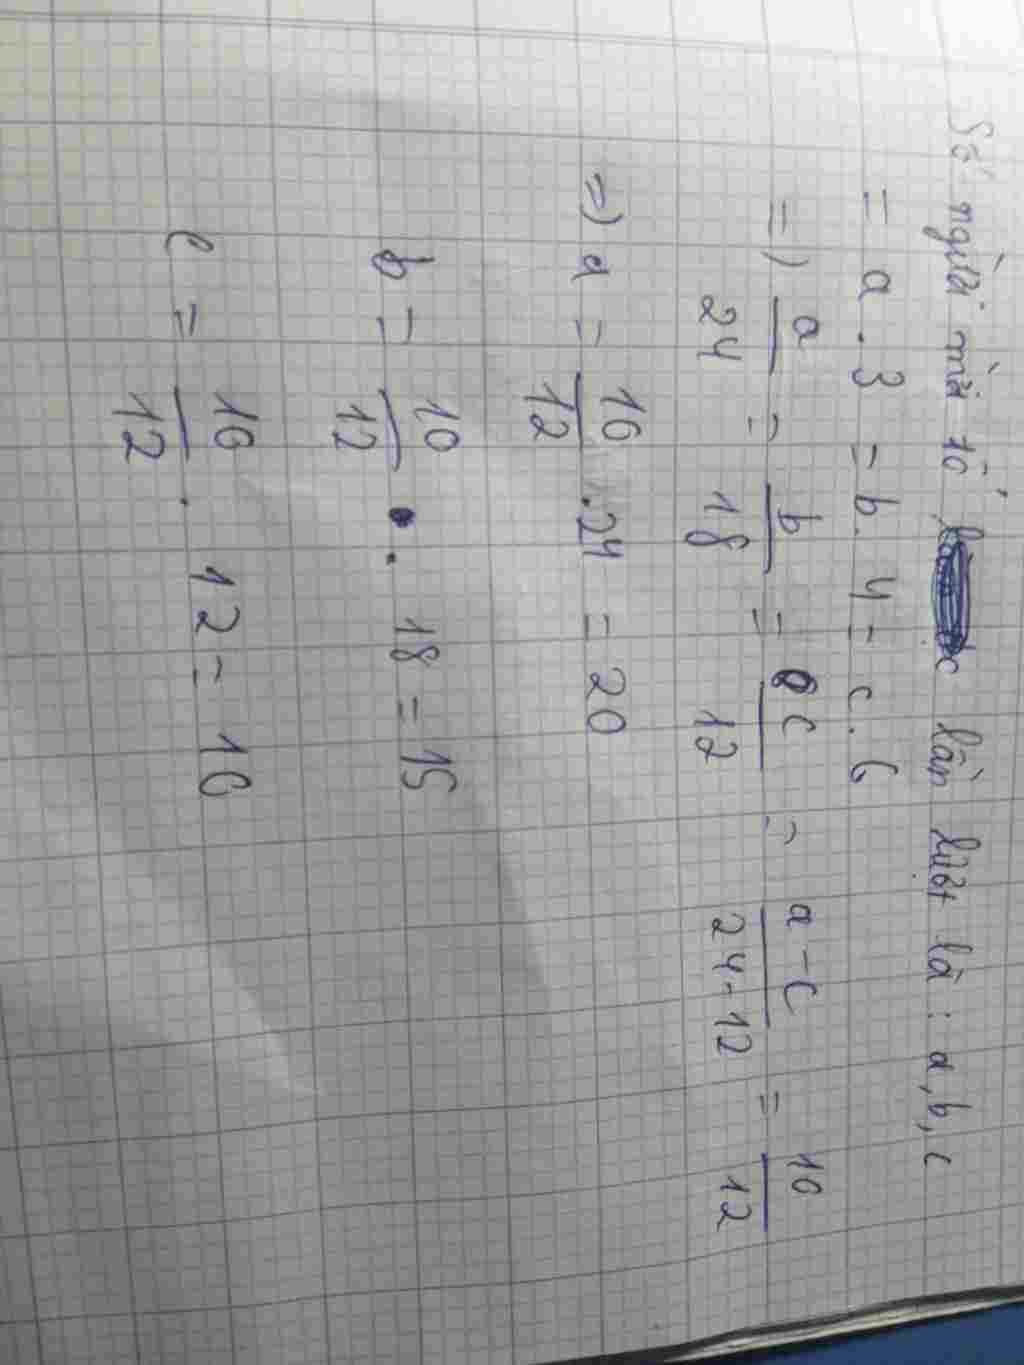 Số người mỗi tổ lần lượt là : a, b, c
= a . 3 = b . 4 = c . 6
=) a/24 = b/18 = c/12 = a-c/24-12 = 10/12
=) a = 10/12 . 24 = 20
b = 10/12 . 18 = 15
c = 10/12 . 12 = 10